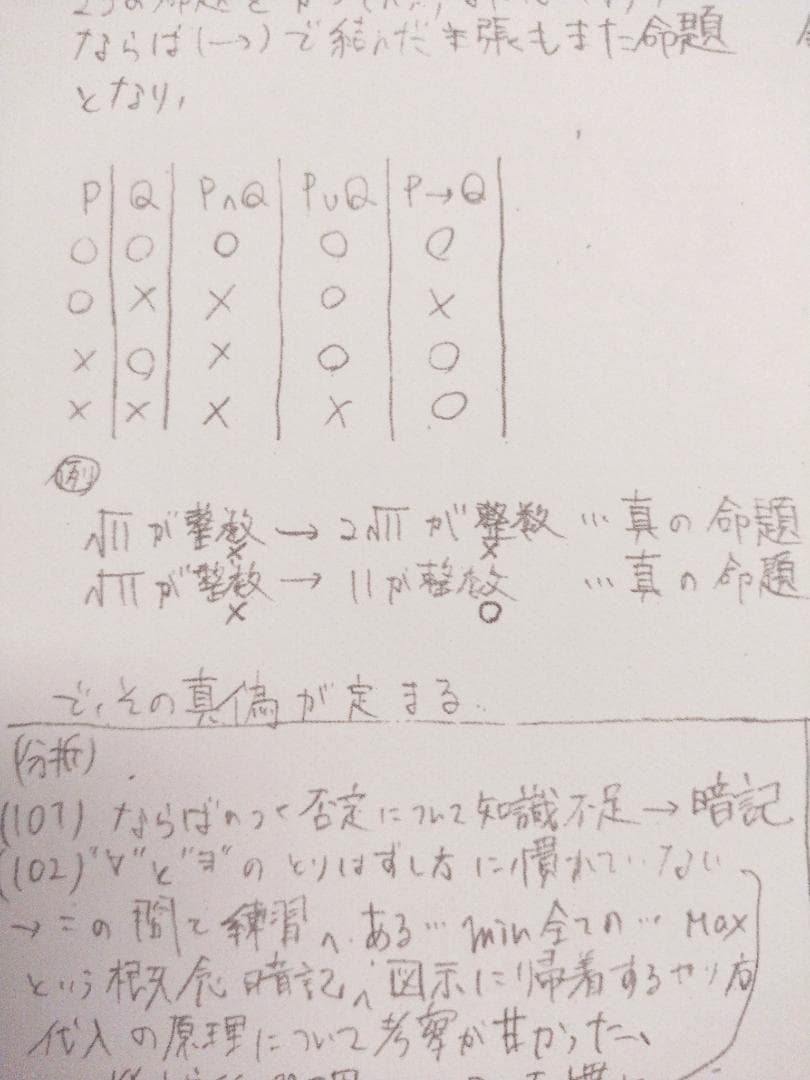 ならば(→)で結んだ主張もまた命題
となり、
P Q P∧Q P∪Q P→Q
○ ○ ○ ○ ○
○ × × ○ ×
× ○ × ○ ○
× × × × ○
例
√11が整数 → 2√11が整数 …真の命題
× ×
√11が整数 → 11が整数 …真の命題
× ○
で、その真偽が定まる.
(分析)
(101) ならばのつく否定について知識不足→暗記
(102)"∀"と"ヨ"のとりはずし方に慣れていない
→この問で練習へ、ある…min全ての…Max
という概念暗記へ、図示に帰着するやり方
代入の原理について考察が甘かった、